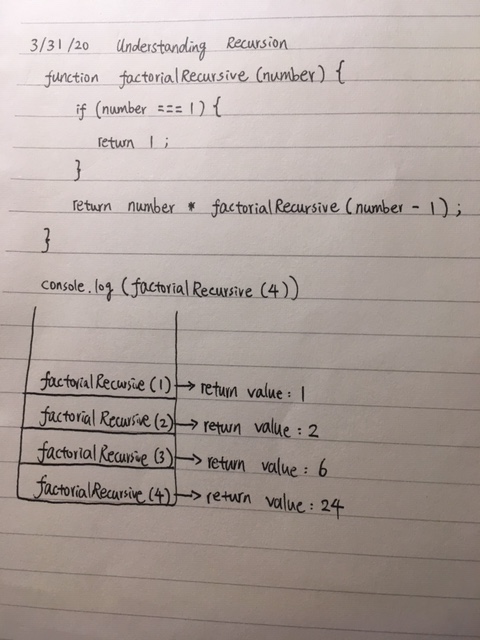 3/31/20 Understanding Recursion
function factorialRecursive (number) {
if (number === 1) {
return 1 ;
}
return number * factorialRecursive (number - 1) ;
}
console.log (factorialRecursive (4))
factorialRecursive (1) → return value : 1
factorialRecursive (2) → return value : 2
factorialRecursive (3) → return value : 6
factorialRecursive (4) → return value : 24